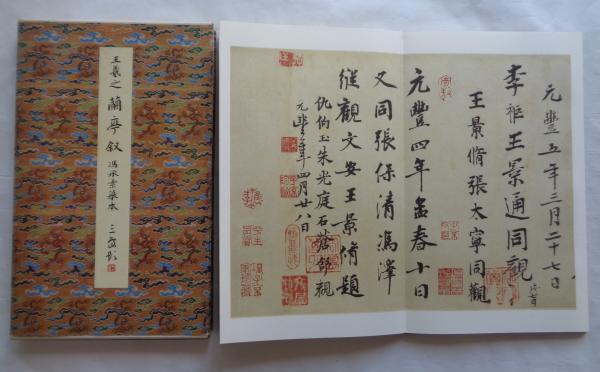 王羲之 蘭亭叙 馮承素摹本
元豐五年三月二十七日
李秬王景通同觀
王景脩張太寧同觀
元豐四年孟春十日
又同張保清馮澤
縱觀文安王景脩題
仇伯玉朱光庭石蒼舒觀
元豐年四月廿八日